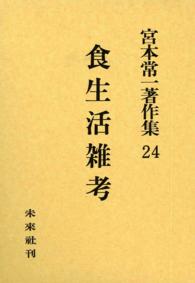 宮本常一著作集
24
食生活雑考
未來社刊